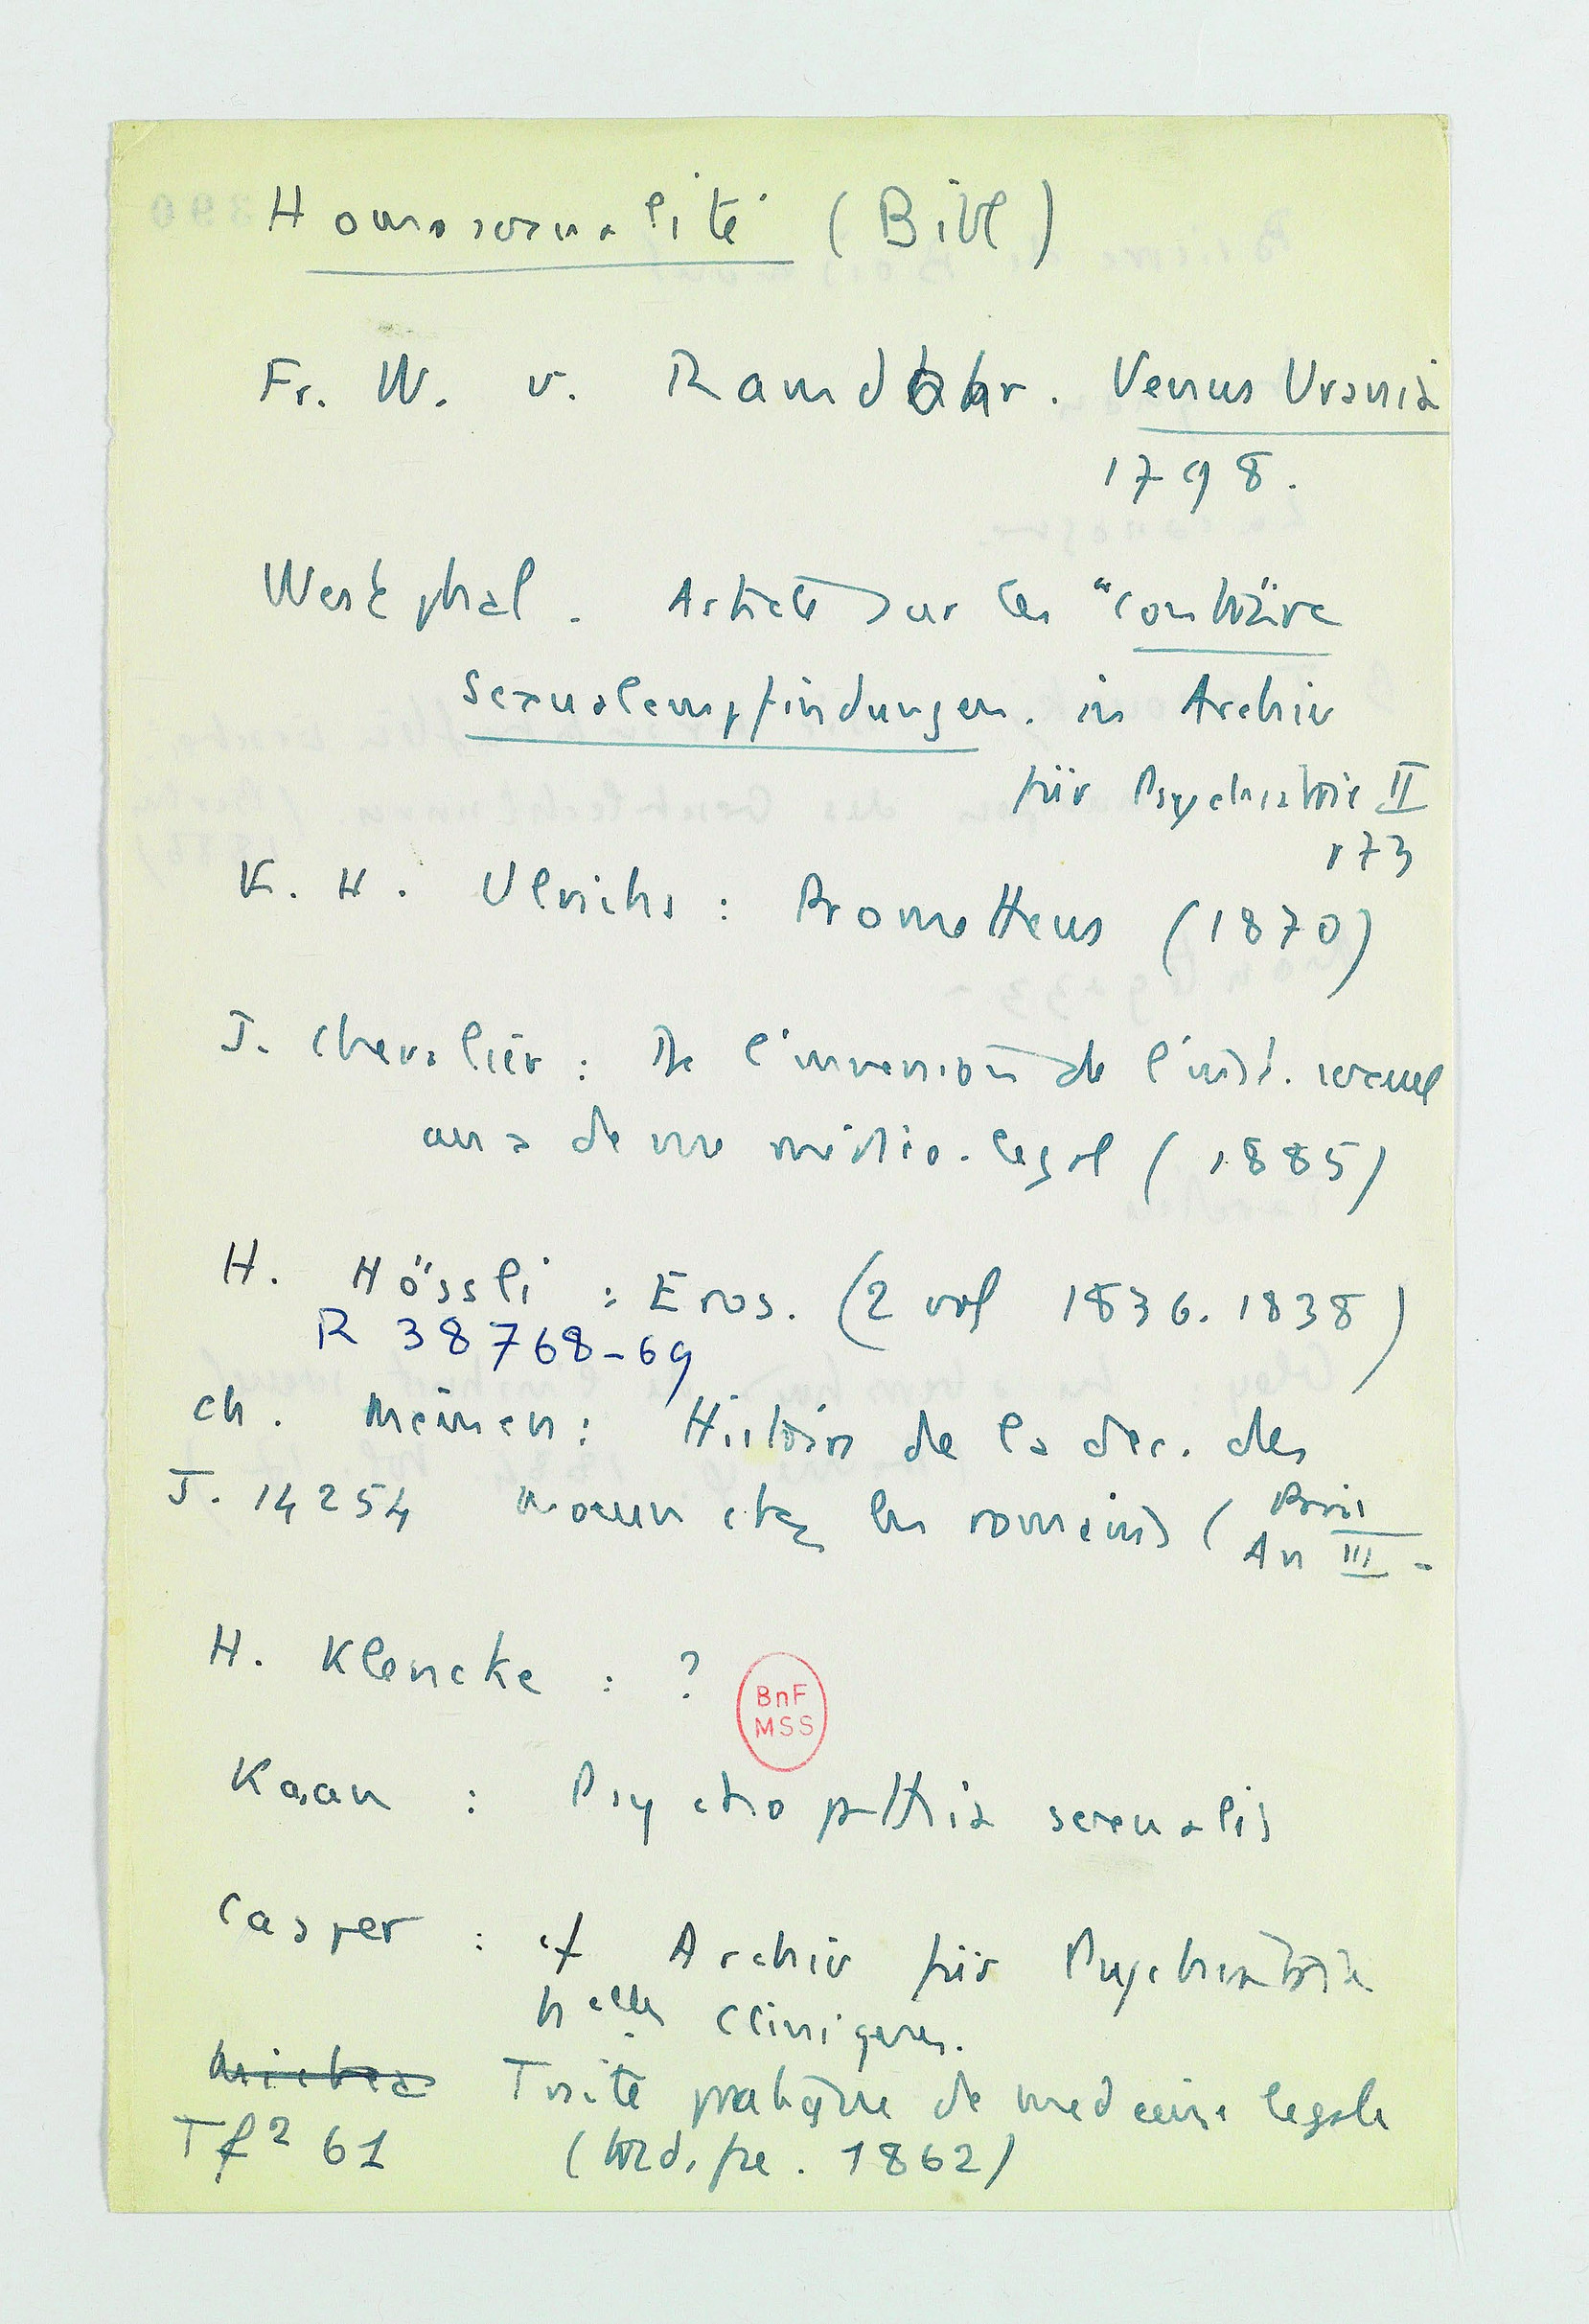 Homosexualité (Bibl)
Fr. W. v. Ramdohr. Venus Urania
1798.
Westphal. Article sur les "conträre
Sexualempfindungen. in Archiv
für Psychiatrie II
173
K. H. Ulrichs : Prometheus (1870)
J. Chevalier : De l'inversion de l'inst. sexuel
au de vue médico-légal (1885)
H. Hössli : Eros. (2 vol 1836. 1838)
R 38768-69
Ch. Meiners : Histoire de la dec. des
J. 14254 moeurs chez les romains (Paris
An III -
H. Klencke : ?
BnF
MSS
Kaan : Psychopathia sexualis
Casper : cf Archiv für Psychiatrie
nelles cliniques.
Traité pratique de medecine legale
Tf2 61 (trad. fse. 1862)